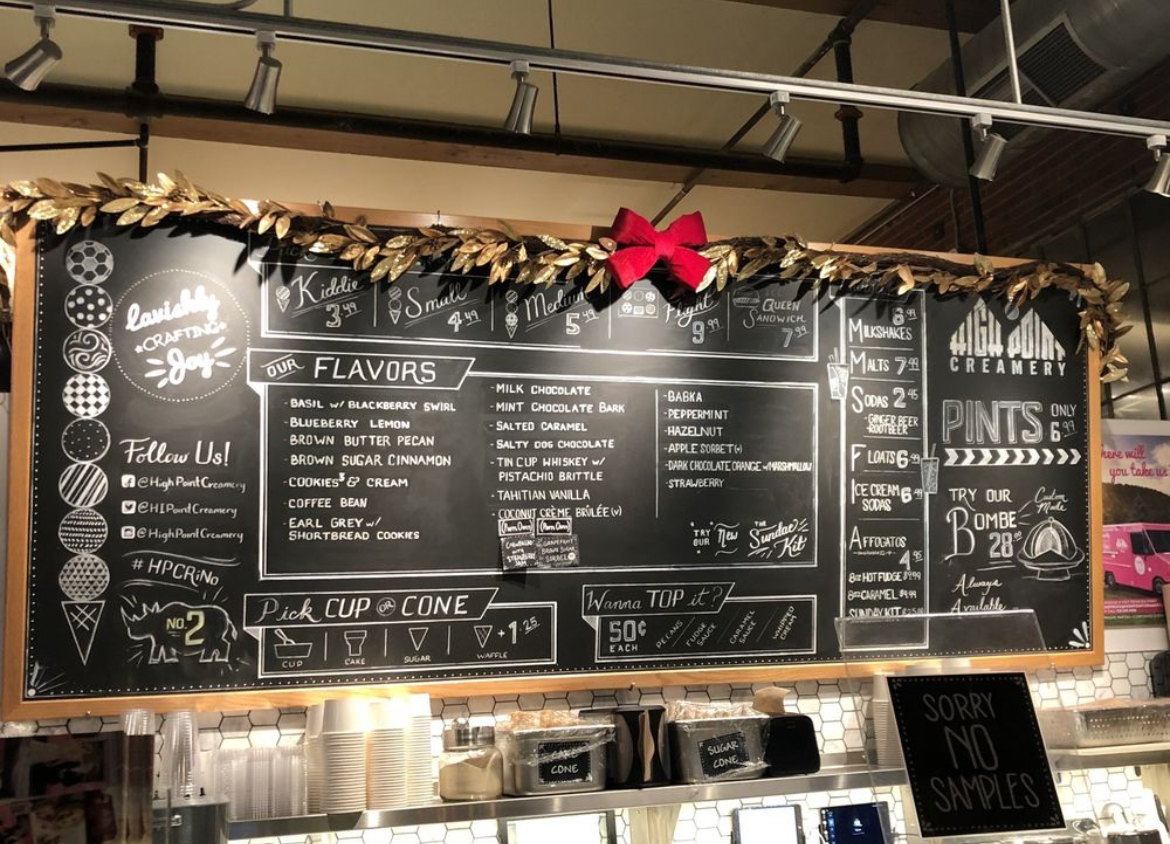 Lavishly
CRAFTING
Joy
Follow Us!
@HighPointCreamery
@HIPointCreamery
@HighPointCreamery
#HPCRiNo
NO. 2
Kiddie
3.49
Small
4.49
Medium
5.49
Flight
9.99
QUEEN
SANDWICH
7.99
OUR FLAVORS
-BASIL W/ BLACKBERRY SWIRL
-BLUEBERRY LEMON
-BROWN BUTTER PECAN
-BROWN SUGAR CINNAMON
-COOKIES & CREAM
-COFFEE BEAN
-EARL GREY W/
SHORTBREAD COOKIES
-MILK CHOCOLATE
-MINT CHOCOLATE BARK
-SALTED CARAMEL
-SALTY DOG CHOCOLATE
-TIN CUP WHISKEY W/
PISTACHIO BRITTLE
-TAHITIAN VANILLA
-COCONUT CRÈME BRÛLÉE (V)
-BABKA
-PEPPERMINT
-HAZELNUT
-APPLE SORBET (V)
-DARK CHOCOLATE ORANGE W/ MARSHMALLOW
-STRAWBERRY
TRY OUR New THE Sundae Kit
Pick CUP OR CONE
CUP
CAKE
SUGAR
WAFFLE
+1.25
Wanna TOP it?
50¢
EACH
PECANS
FUDGE SAUCE
CARAMEL SAUCE
WHIPPED CREAM
MILKSHAKES
MALTS 7.99
SODAS 2.45
-GINGER BEER
-ROOTBEER
FLOATS 6.99
ICE CREAM
SODAS 6.99
AFFOGATOS
4.95
8oz HOT FUDGE $9.99
8oz CARAMEL $9.99
SUNDAY KIT
HIGH POINT
CREAMERY
PINTS ONLY
6.99
TRY OUR
BOMBE
28
Custom
Made
Always
Available
here will
you take us
CAKE
CONE
SUGAR
CONE
SORRY
NO
SAMPLES